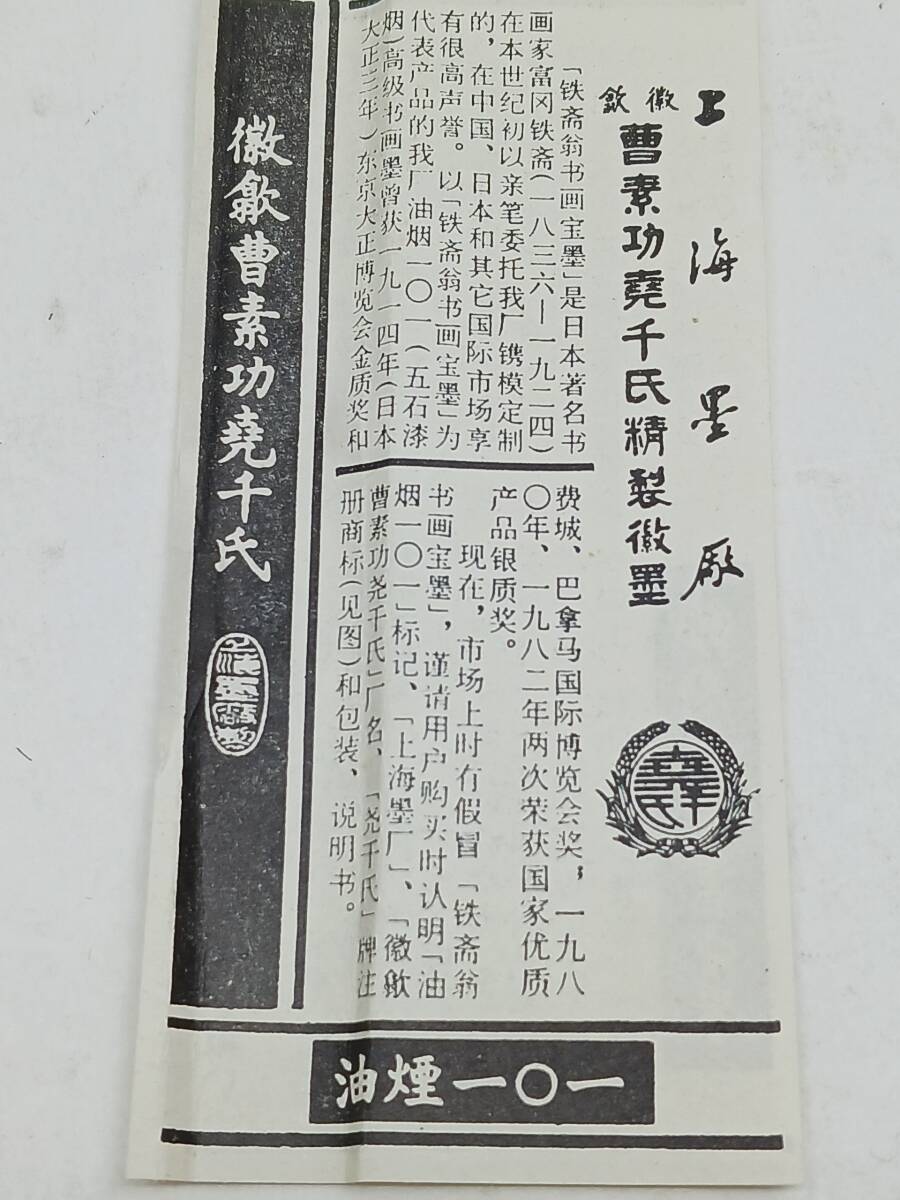 上海墨厰
徽歙
曹素功堯千氏精製徽墨
堯千氏
「铁斋翁书画宝墨」是日本著名书
画家富冈铁斋(一八三六—一九二四)
在本世纪初以亲笔委托我厂镌模定制
的,在中国、日本和其它国际市场享
有很高声誉。以「铁斋翁书画宝墨」为
代表产品的我厂油烟一〇一(五石漆
烟)高级书画墨曾获一九一四年(日本
大正三年)东京大正博览会金质奖和
费城、巴拿马国际博览会奖,一九八
〇年、一九八二年两次荣获国家优质
产品银质奖。
现在,市场上时有假冒「铁斋翁
书画宝墨」,谨请用户购买时认明「油
烟一〇一」标记、「上海墨厂」、「徽歙
曹素功尧千氏」厂名、「尧千氏」牌注
册商标(见图)和包装、说明书。
徽歙曹素功堯千氏
上海墨厰製
油煙一〇一